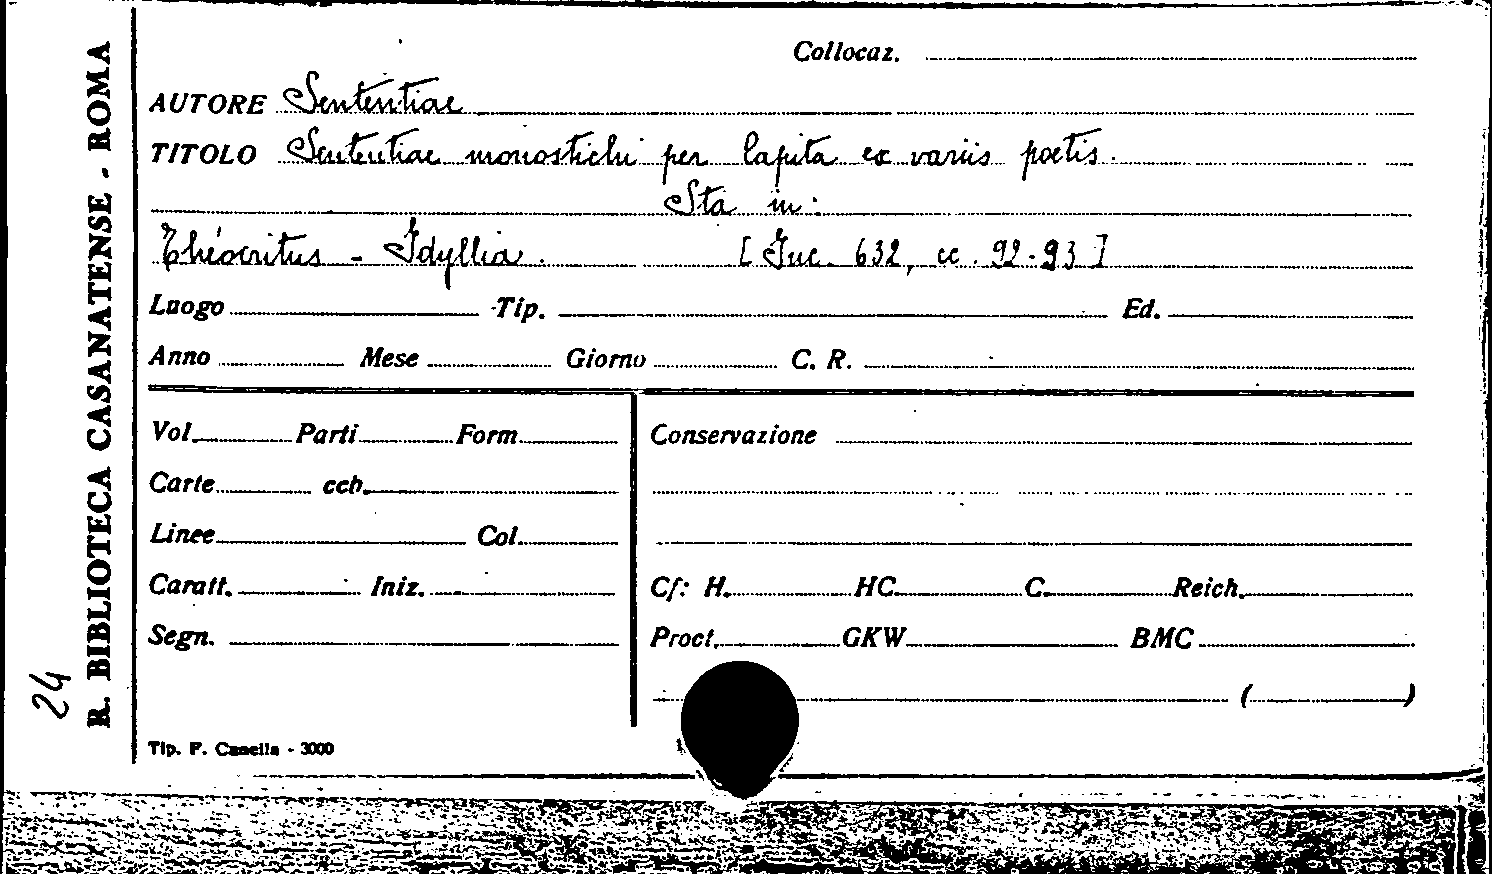 Collocaz.
AUTORE Sententiae
TITOLO Sententiae monostichi per Capita ex variis poetis.
Sta in:
Théocritus - Idyllia. [Inc. 632, cc. 92-93]
Luogo Tip. Ed.
Anno Mese Giorno C. R.
Vol. Parti Form.
Carte cch.
Linee Col.
Caratt. Iniz.
Segn.
Conservazione
Cf: H. HC. C. Reich.
Proct. GKW BMC
( )
Tip. F. Canella - 3000
R. BIBLIOTECA CASANATENSE - ROMA
24